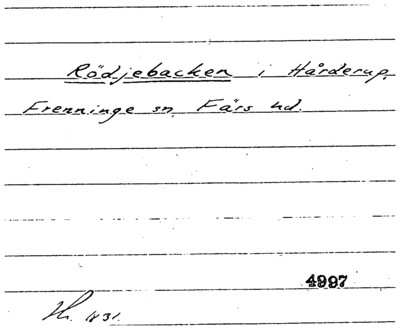 Rödjebacken i Hårderup,
Frenninge sn. Färs hd.
4997
1831.